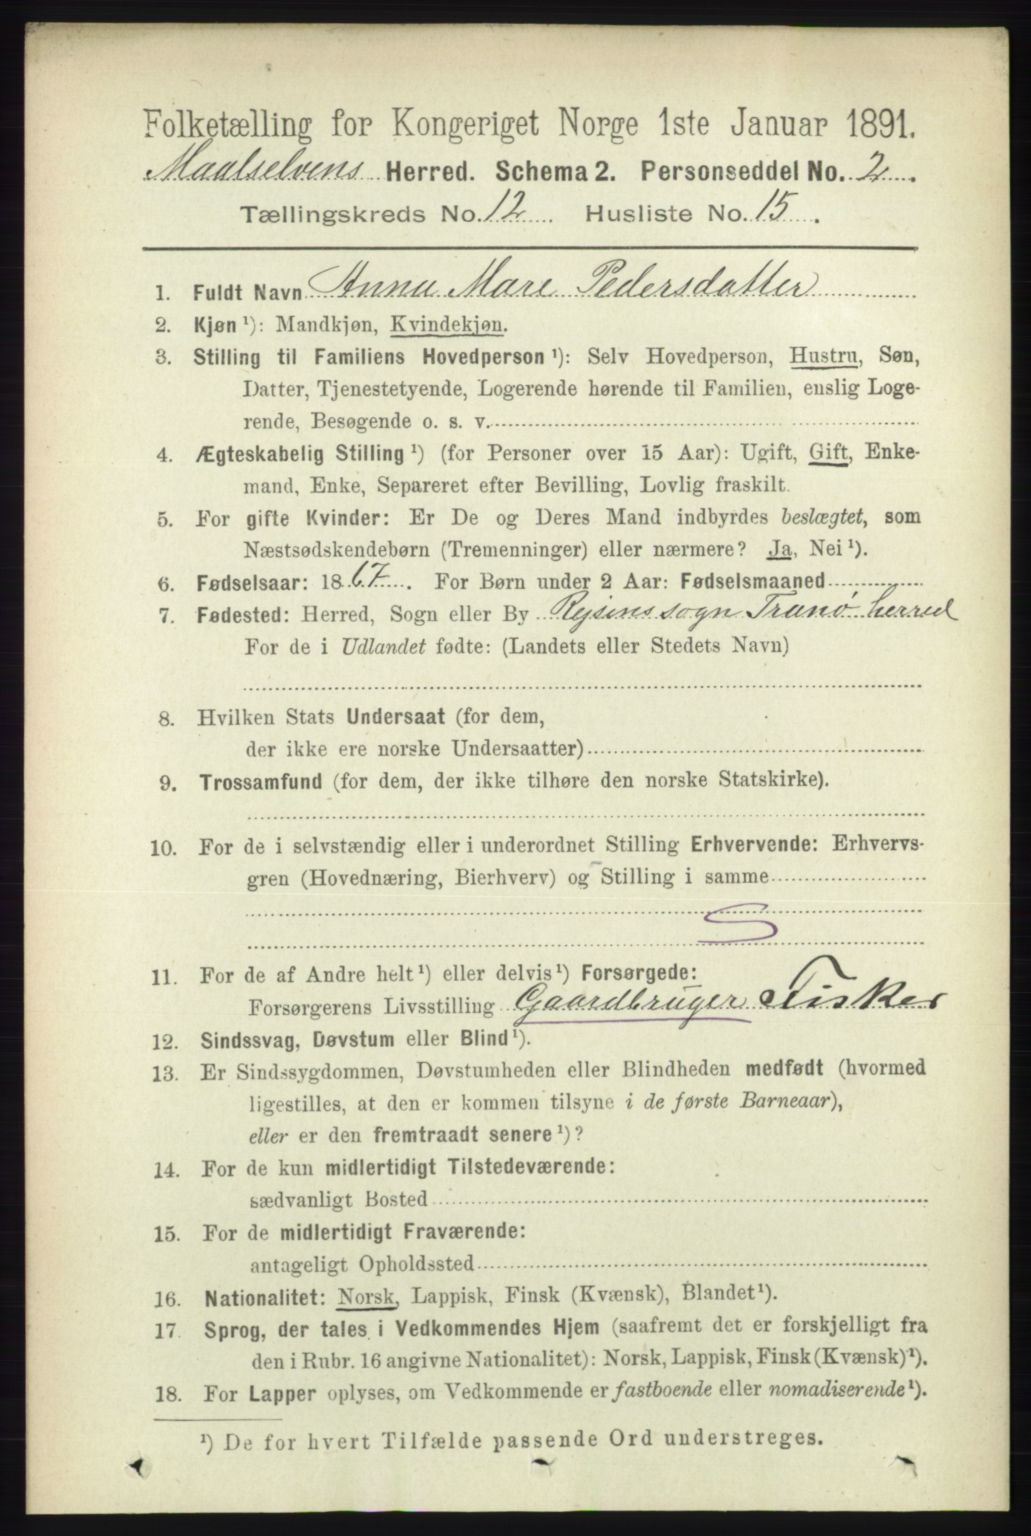 Folketælling for Kongeriget Norge 1ste Januar 1891.
Maalselvens Herred. Schema 2. Personseddel No. 2.
Tællingskreds No. 12 Husliste No. 15.
1. Fuldt Navn Anna Mare Pedersdatter
2. Kjøn ¹): Mandkjøn, Kvindekjøn.
3. Stilling til Familiens Hovedperson ¹): Selv Hovedperson, Hustru, Søn,
Datter, Tjenestetyende, Logerende hørende til Familien, enslig Loge-
rende, Besøgende o. s. v.
4. Ægteskabelig Stilling ¹) (for Personer over 15 Aar): Ugift, Gift, Enke-
mand, Enke, Separeret efter Bevilling, Lovlig fraskilt.
5. For gifte Kvinder: Er De og Deres Mand indbyrdes beslægtet, som
Næstsødskendebørn (Tremenninger) eller nærmere? Ja, Nei ¹).
6. Fødselsaar: 1867. For Børn under 2 Aar: Fødselsmaaned
7. Fødested: Herred, Sogn eller By Rejsens sogn Tranø herred
For de i Udlandet fødte: (Landets eller Stedets Navn)
8. Hvilken Stats Undersaat (for dem,
der ikke ere norske Undersaatter)
9. Trossamfund (for dem, der ikke tilhøre den norske Statskirke).
10. For de i selvstændig eller i underordnet Stilling Erhvervende: Erhvervs-
gren (Hovednæring, Bierhverv) og Stilling i samme
S
11. For de af Andre helt ¹) eller delvis ¹) Forsørgede:
Forsørgerens Livsstilling Gaardbruger Fisker
12. Sindssvag, Døvstum eller Blind ¹).
13. Er Sindssygdommen, Døvstumheden eller Blindheden medfødt (hvormed
ligestilles, at den er kommen tilsyne i de første Barneaar),
eller er den fremtraadt senere ¹)?
14. For de kun midlertidigt Tilstedeværende:
sædvanligt Bosted
15. For de midlertidigt Fraværende:
antageligt Opholdssted
16. Nationalitet: Norsk, Lappisk, Finsk (Kvænsk), Blandet ¹).
17. Sprog, der tales i Vedkommendes Hjem (saafremt det er forskjelligt fra
den i Rubr. 16 angivne Nationalitet): Norsk, Lappisk, Finsk (Kvænsk) ¹).
18. For Lapper oplyses, om Vedkommende er fastboende eller nomadiserende ¹).
¹) De for hvert Tilfælde passende Ord understreges.